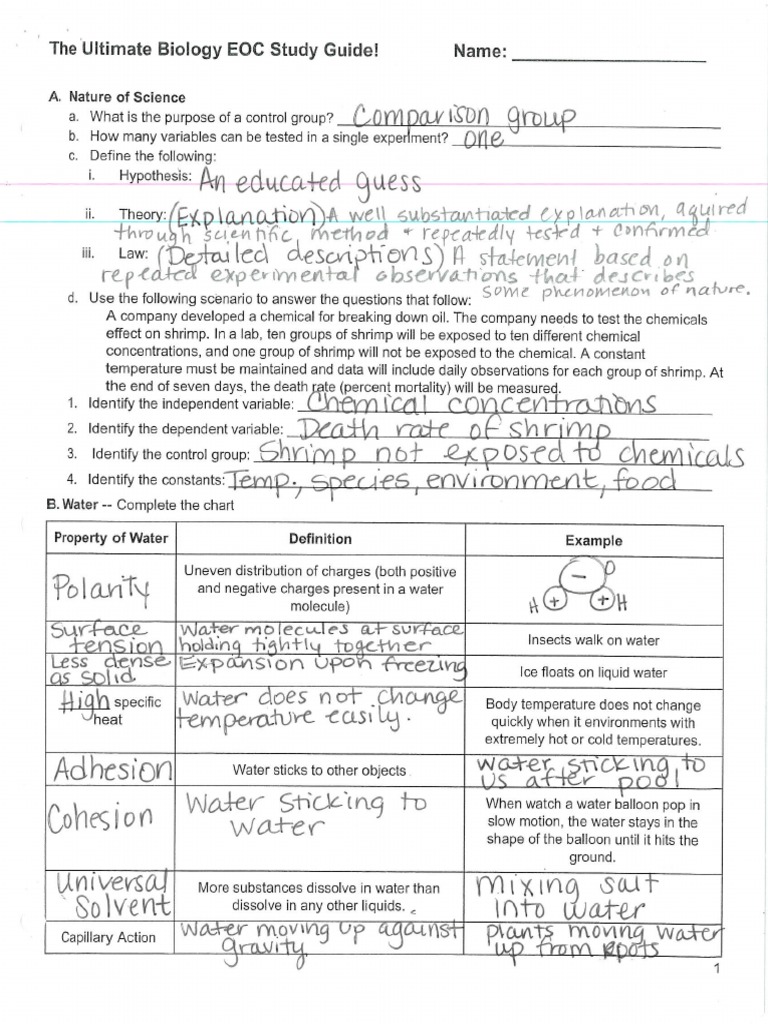 The Ultimate Biology EOC Study Guide! Name:
A. Nature of Science
a. What is the purpose of a control group? Comparison group
b. How many variables can be tested in a single experiment? one
c. Define the following:
i. Hypothesis: An educated guess
ii. Theory: (Explanation) A well substantiated explanation, aquired
through scientific method + repeatedly tested + confirmed
iii. Law: (Detailed descriptions) A statement based on
repeated experimental observations that describes
some phenomenon of nature.
d. Use the following scenario to answer the questions that follow:
A company developed a chemical for breaking down oil. The company needs to test the chemicals
effect on shrimp. In a lab, ten groups of shrimp will be exposed to ten different chemical
concentrations, and one group of shrimp will not be exposed to the chemical. A constant
temperature must be maintained and data will include daily observations for each group of shrimp. At
the end of seven days, the death rate (percent mortality) will be measured.
1. Identify the independent variable: Chemical concentrations
2. Identify the dependent variable: Death rate of shrimp
3. Identify the control group: Shrimp not exposed to chemicals
4. Identify the constants: Temp., species, environment, food
B. Water -- Complete the chart
Property of Water Definition Example
Polarity
Uneven distribution of charges (both positive
and negative charges present in a water
molecule)
− O
H + + H
Surface
tension
Water molecules at surface
holding tightly together
Insects walk on water
Less dense
as solid
Expansion upon freezing
Ice floats on liquid water
High specific
heat
Water does not change
temperature easily.
Body temperature does not change
quickly when it environments with
extremely hot or cold temperatures.
Adhesion
Water sticks to other objects
water sticking to
us after pool
Cohesion
Water sticking to
water
When watch a water balloon pop in
slow motion, the water stays in the
shape of the balloon until it hits the
ground.
Universal
Solvent
More substances dissolve in water than
dissolve in any other liquids.
Mixing salt
into water
Capillary Action
Water moving up against
gravity.
plants moving water
up from roots
1